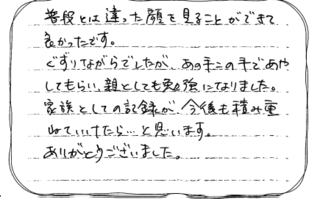 普段とは違った顔を見ることができて
良かったです。
ぐずりながらでしたが、あの手この手であや
してもらい、親としても勉強になりました。
家族としての記録が、今後も積み重
ねていけたら…と思います。
ありがとうございました。